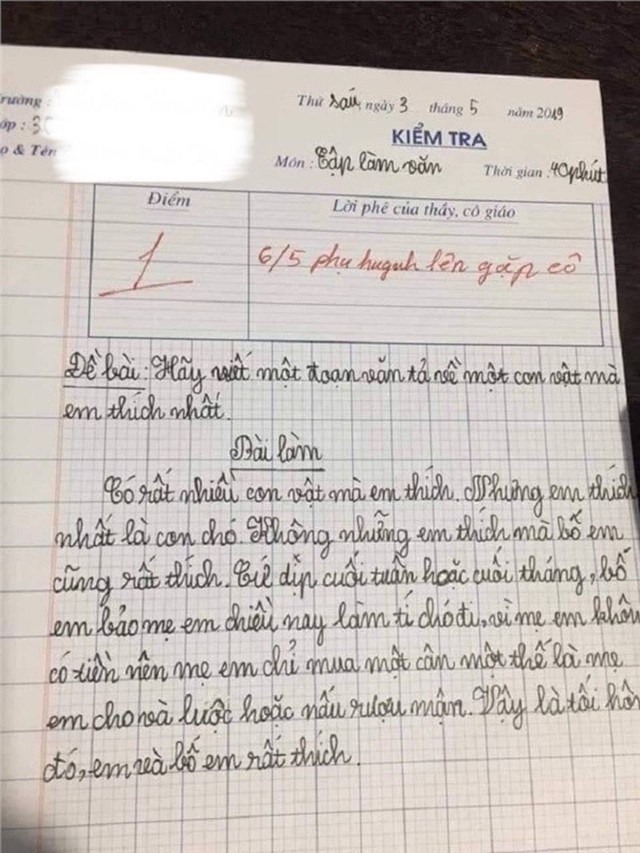 Trường :
Thứ sáu, ngày 3 tháng 5 năm 2019
Lớp : 3C
KIỂM TRA
Họ & Tên
Môn : Tập làm văn Thời gian : 40 phút
Điểm Lời phê của thầy, cô giáo
1 6/5 phụ huynh lên gặp cô
Đề bài: Hãy viết một đoạn văn tả về một con vật mà
em thích nhất.
Bài làm
Có rất nhiều con vật mà em thích. Nhưng em thích
nhất là con chó. Không những em thích mà bố em
cũng rất thích. Cứ dịp cuối tuần hoặc cuối tháng, bố
em bảo mẹ em chiều nay làm tí chó đi, vì mẹ em khôn
có tiền nên mẹ em chỉ mua một cân một thế là mẹ
em cho và luộc hoặc nấu rượu mận. Vậy là tối hôm
đó, em và bố em rất thích.